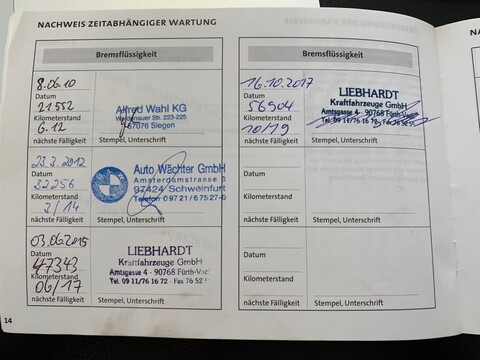 NACHWEIS ZEITABHÄNGIGER WARTUNG
Bremsflüssigkeit
8.06.10
Datum
21552
Kilometerstand
6.12
nächste Fälligkeit
Alfred Wahl KG
Weidenauer Str. 223-225
57076 Siegen
Stempel, Unterschrift
23.3.2012
Datum
32256
Kilometerstand
3/14
nächste Fälligkeit
Auto Wächter GmbH
Amsterdamstrasse
97424 Schweinfurt
Telefon 09721/67527-0
Stempel, Unterschrift
03.06.2015
Datum
47343
Kilometerstand
06/17
nächste Fälligkeit
LIEBHARDT
Kraftfahrzeuge GmbH
Amtsgasse 4 · 90768 Fürth-Vach
Tel. 09 11/76 16 72 · Fax 76 52
Stempel, Unterschrift
Bremsflüssigkeit
16.10.2017
Datum
56904
Kilometerstand
10/19
nächste Fälligkeit
LIEBHARDT
Kraftfahrzeuge GmbH
Amtsgasse 4 · 90768 Fürth-Vach
Tel. 09 11/76 16 72 · Fax 76 52
Stempel, Unterschrift
Datum
Kilometerstand
nächste Fälligkeit
Stempel, Unterschrift
Datum
Kilometerstand
nächste Fälligkeit
Stempel, Unterschrift
14